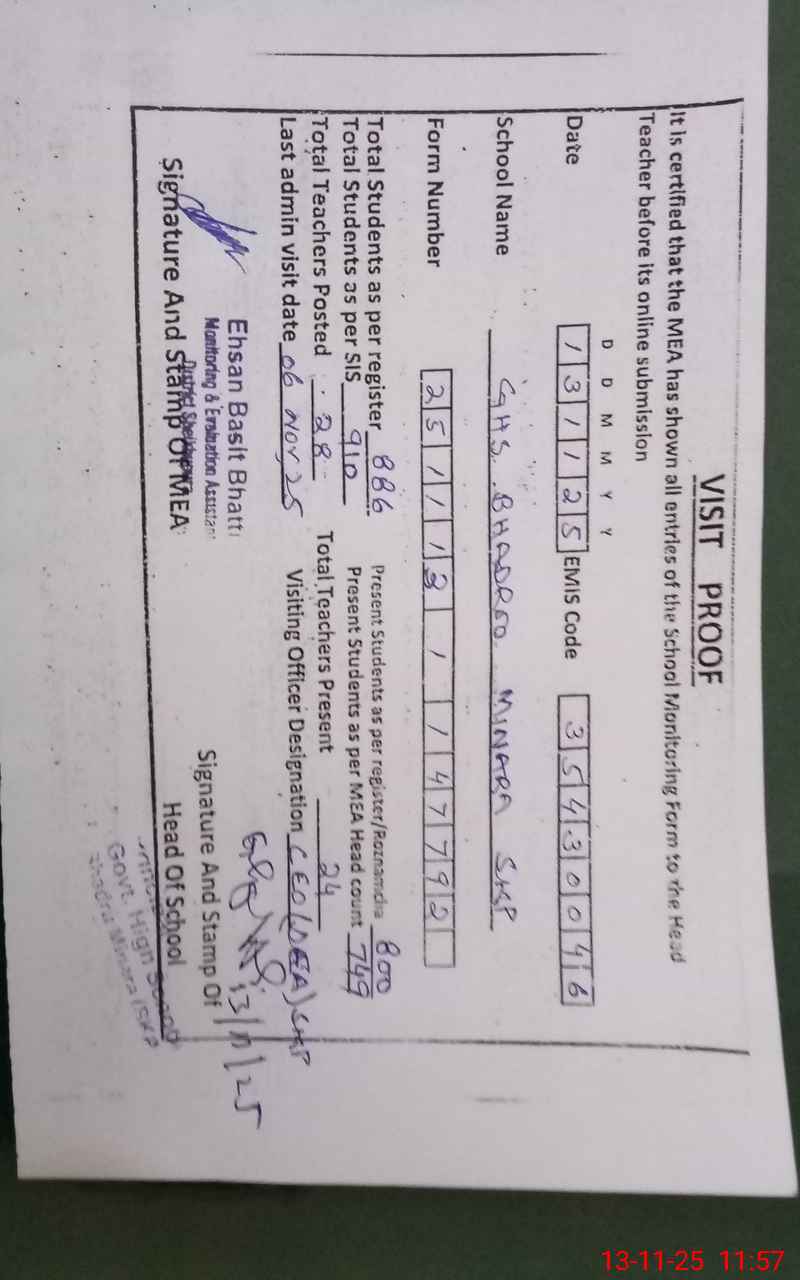 VISIT PROOF
It is certified that the MEA has shown all entries of the School Monitoring Form to the Head
Teacher before its online submission
D D M M Y Y
Date 1 3 1 1 2 5 EMIS Code 3 5 4 3 0 0 4 6
School Name GHS. BHADROO. MINARA SKP
Form Number 2 5 1 1 1 3 1 1 4 7 7 9 2
Total Students as per register 886 Present Students as per register/Roznamcha 800
Total Students as per SIS 910 Present Students as per MEA Head count 749
Total Teachers Posted 28 Total Teachers Present 24
Last admin visit date 06 Nov, 25 Visiting Officer Designation CEO(DEA) SKP
Ehsan Basit Bhatti
Monitoring & Evaluation Assistant
District Sheikhupura
Signature And Stamp Of MEA
13/11/25
Signature And Stamp Of
Head Of School
Govt. High School
Minara (SKP
13-11-25 11:57